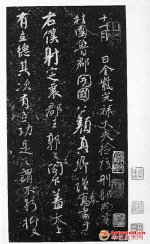 十一月 日金紫光祿大夫檢校刑部尚書
上柱國魯郡開國公顏真卿謹奉書于
右僕射定襄郡王郭公閣下蓋太上
有立德其次有立功是之謂不朽抑